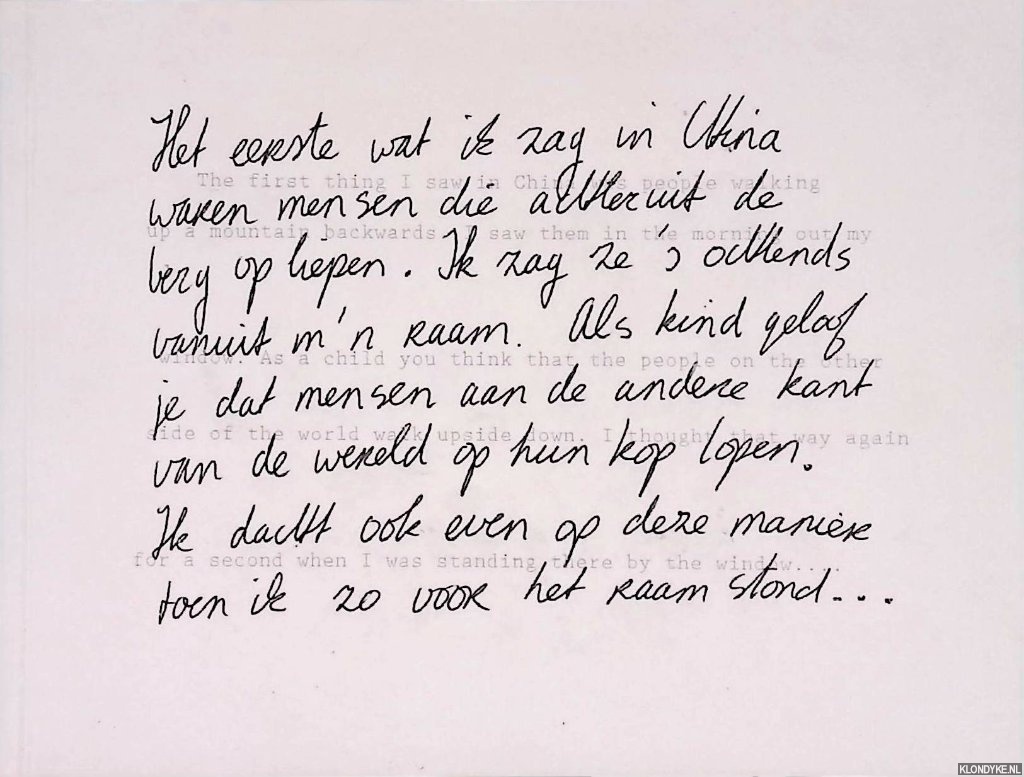 Het eerste wat ik zag in China
The first thing I saw in China was people walking
waren mensen die achteruit de
up a mountain backwards. I saw them in the morning out my
berg op liepen. Ik zag ze 's ochtends
vanuit m'n raam. Als kind geloof
window. As a child you think that the people on the other
je dat mensen aan de andere kant
side of the world walk upside down. I thought that way again
van de wereld op hun kop lopen.
Ik dacht ook even op deze manier
for a second when I was standing there by the window....
toen ik zo voor het raam stond...
KLONDYKE.NL